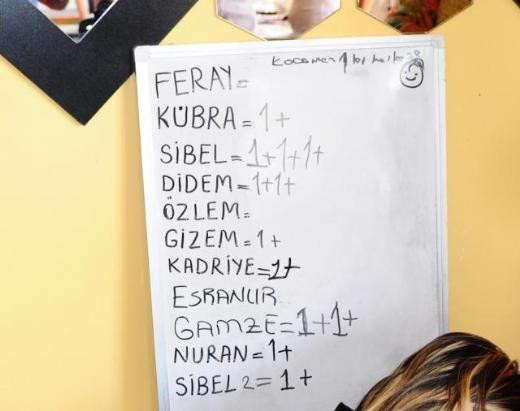 Kocaman 1
FERAY=
KÜBRA=1+
SİBEL=1+1+1+
DİDEM=1+1+
ÖZLEM=
GİZEM=1+
KADRİYE=1+
ESRANUR
GAMZE=1+1+
NURAN=1+
SİBEL 2=1+